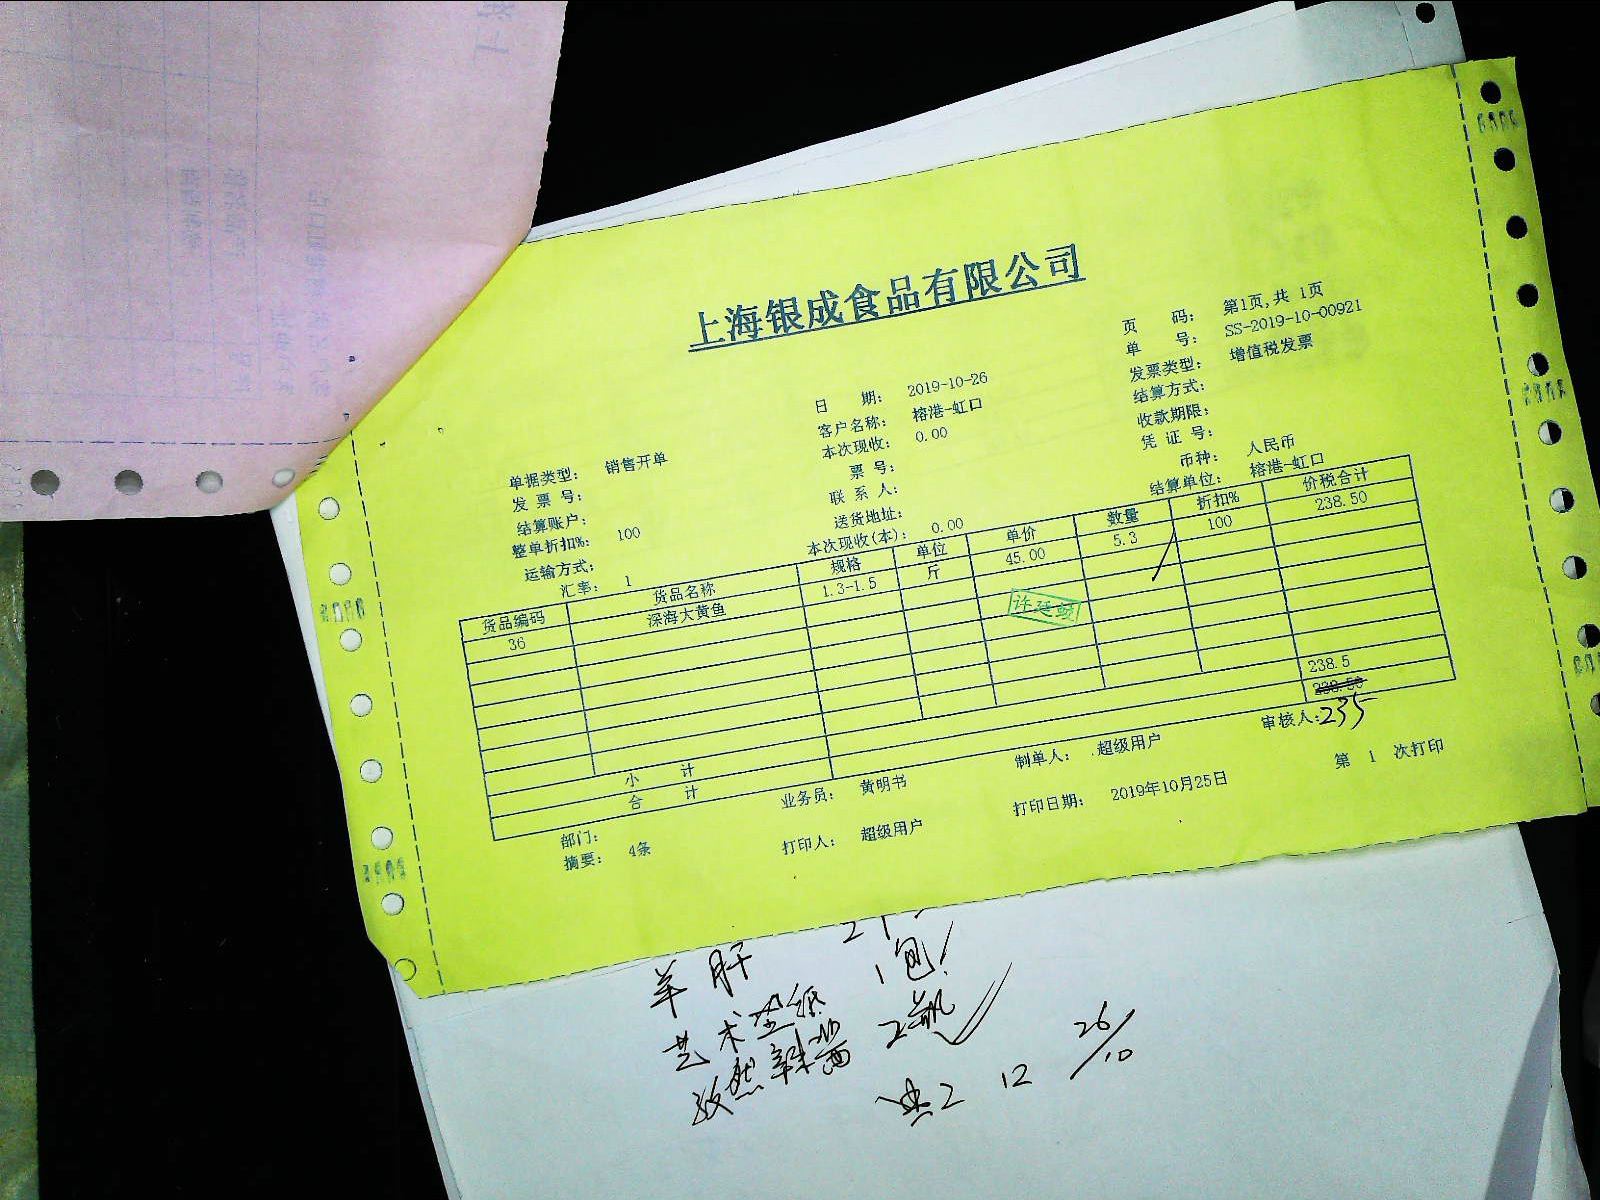 上海银成食品有限公司
页 码: 第1页,共 1页
单 号: SS-2019-10-00921
日 期: 2019-10-26
发票类型: 增值税发票
客户名称: 榕港-虹口
结算方式:
本次现收: 0.00
收款期限:
单据类型: 销售开单
票 号:
凭 证 号:
发 票 号:
联 系 人:
币种: 人民币
结算账户:
送货地址:
结算单位: 榕港-虹口
整单折扣%: 100
本次现收(本): 0.00
运输方式:
汇率: 1
货品编码 货品名称 规格 单位 单价 数量 折扣% 价税合计
36 深海大黄鱼 1.3-1.5 斤 45.00 5.3 100 238.50
小 计 238.5
合 计 238.50
235
部门: 业务员: 黄明书 制单人: 超级用户 审核人:
摘要: 4条 打印人: 超级用户 打印日期: 2019年10月25日 第 1 次打印
羊肝
艺术垫纸 1包
辣酱 2瓶
12 26/10